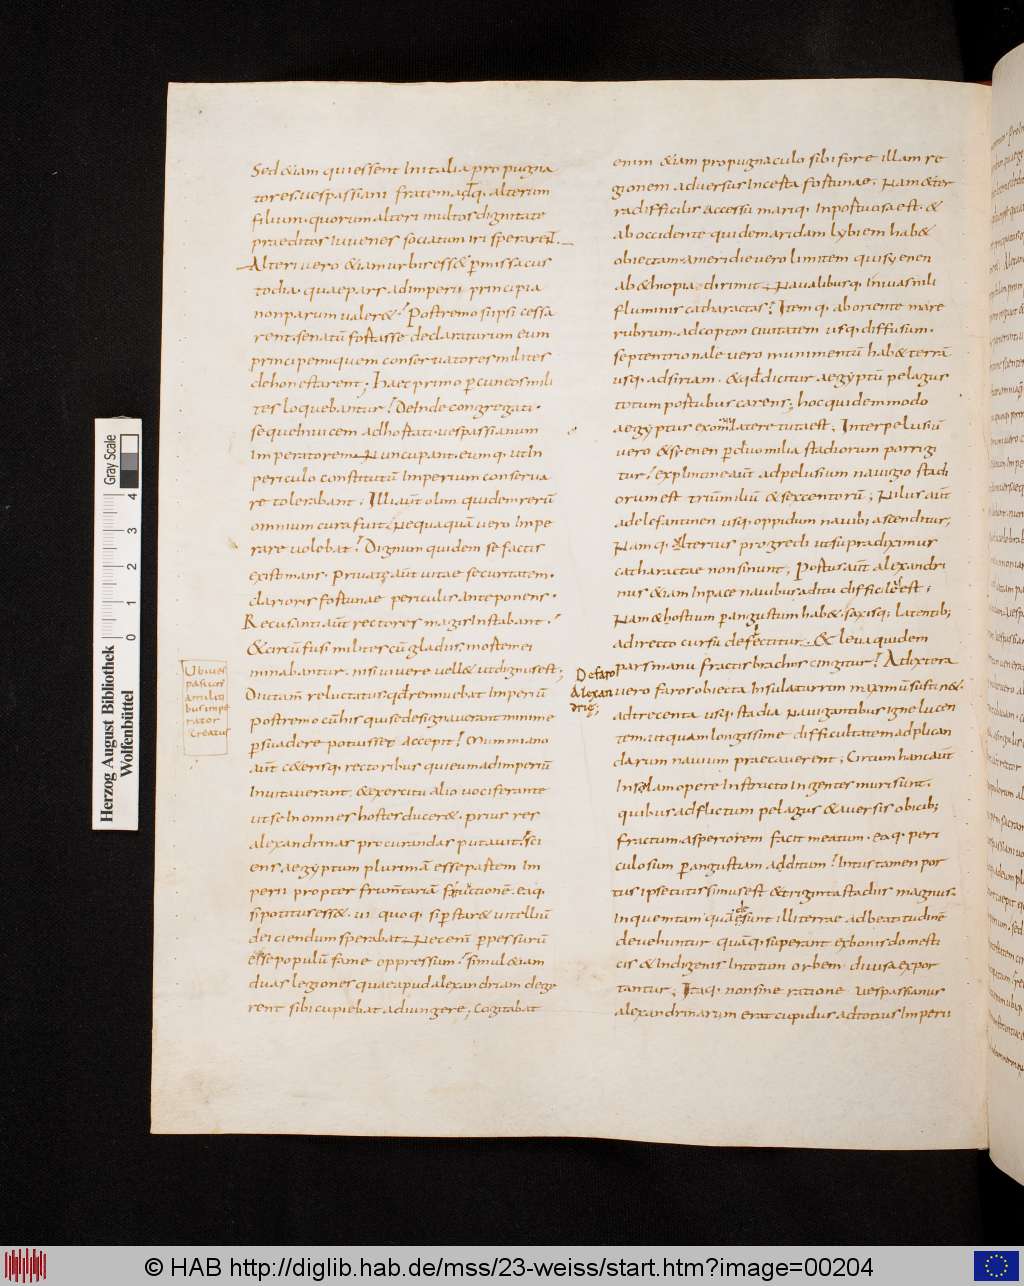 Sed &iam qui essent In italia propugna
tores. uespassiani fratrem atq. alterum
filium. quorum alteri multos dignitate
praeditos iuuenes sociatum iri sperarent.
Alteri uero &iam urbis ess& pmissa cus
todia. quae pars ad imperii principia
non parum ualer&; Postremo si ipsi cessa
rent. senatū fortasse declaraturum eum
principem quem conseruatores milites
dehonestarent; Haec primo p cuneos mili
tes loquebantur; DeInde congregati.
seque inuicem adhortati. uespassianum
Imperatorem Nuncupant. eumq. ut In
periculo constitutū Imperium conserua
re tolerabant; Illi aūt olim quidem rerū
omnium cura fuit. Nequaquā uero Impe
rare uolebat; Dignum quidem se factis
existimans. Priuatę aūt uitae securitatem.
clarioris fortunae periculis anteponens.
Recusanti aūt rectores magis Instabant;
&circū fusi milites cū gladiis mortem ei
minabantur. nisi uiuere uell& ut dignus est;
Diu tam̄ reluctatus qd̄ rennuebat Imperiū
postremo cū his qui se designauerant minime
psuadere potuiss& accepit; Mummiano
aūt c&erisq. rectoribus qui eum ad imperiū
Inuitauerant. &exercitu alio uociferante
ut se In omnes hostes ducer&. prius res
alexandrinas procurandas putauit. sci
ens aegyptum plurimā esse partem Im
perii propter frum̄tariā
si potitus ess&. ui quoq. si pstar& uitelliū
deiciendum sperabat. Nec enī ppessurū
esse populū fame oppressum; simul &iam
duas legiones quae apud alexandriam dege
rent sibi cupiebat adiungere; Cogitabat
Ubi ues
pasian'
a militi
bus impe
rator
creatur
enim &iam propugnaculo sibi fore illam re
gionem aduersus Incerta fortunae. Nam &ter
ra difficilis accessu mariq. Inportuosa est. &
ab occidente quidem aridam lybiem hab&
obiectam. a meridie uero limitem qui syenen
ab &hiopia dirimit. Naualibusq. Inuias nili
fluminis catharactas; Itemq. ab oriente mare
rubrum. ad copton ciuitatem usq. diffusum.
septentrionale uero munimentū hab& terrā
usq. ad siriam. &qd̄ dicitur aegyptū pelagus
totum portubus carens; hoc quidem modo
aegyptus ex omni latere tuta est; Inter pelusiū
uero &syenen p duo milia stadiorum porrigi
tur; explintine aūt ad pelusium nauigio stadi
orum est triū miliū &sexcentorū; Nilus aūt
ad elefantinen usq. oppidum nauib; ascenditur;
Namq. alterius progredi ut supra diximus
catharactae non sinunt; Portus aūt alexandri
nus &iam In pace nauibus aditu difficilis est;
Nam &hostium pangustum hab&. saxisq; latentib;
a directo cursū deflectitur. &leua quidem
pars manu factis brachiis cingitur; A dextera
uero faros obiecta Insula turrem maximū sustin&.
ad trecenta usq. stadia Nauigantibus igne lucen
tem. ut quam longissime difficultatem adplican
darum nauium praecauerent; Circum hanc aūt
Insolam opere Instructo Ingentes muri sunt.
quibus adflictum pelagus &auersis obicib;
fractum. asperiorem facit meatum. eaq. peri
culosium p angustiam additum; Intus tamen por
tus ipse tutissimus est &triginta stadiis magnus.
In quem tam quā desunt illi terrae ad beatitudinē
deuehuntur quāq. superant ex bonis domesti
cis &Indigenis In totum orbem diuisa expor
tantur; Itaq. non sine ratione uespassianus
alexandrinarum erat cupidus ad totius Imperii
De faro
Alexan
driȩ;
Herzog August Bibliothek
Wolfenbüttel
Gray Scale
0 1 2 3 4
© HAB http://diglib.hab.de/mss/23-weiss/start.htm?image=00204